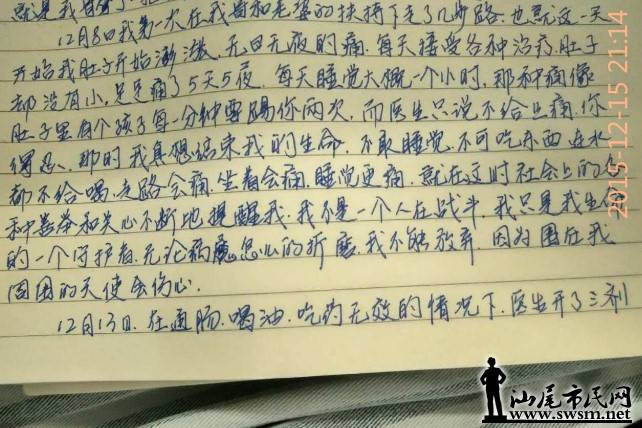 12月8日我第一次在我爸和老婆的扶持下走了几断路.也就这一天
开始我肚子开始渐涨.无日无夜的痛.每天接受各种治疗.肚子
却没有小,足足痛了5天5夜.每天睡觉大概一个小时,那种痛像
肚子里有个孩子每一分钟要踢你两次,而医生只说不给止痛.你
得忍.那时我真想结束我的生命.不敢睡觉,不可吃东西.连水
都不给喝,走路会痛.坐着会痛.睡觉更痛.就在这时社会上的各
种善举和关心不断地提醒我.我不是一个人在战斗.我只是我生命
的一个守护者.无论病魔怎么的折磨.我不能放弃.因为围在我
周围的天使会伤心.
12月13日.在通肠.喝油.吃药无效的情况下.医生开了三剂
2015-12-15 21:14
汕尾市民网
www.swsm.net